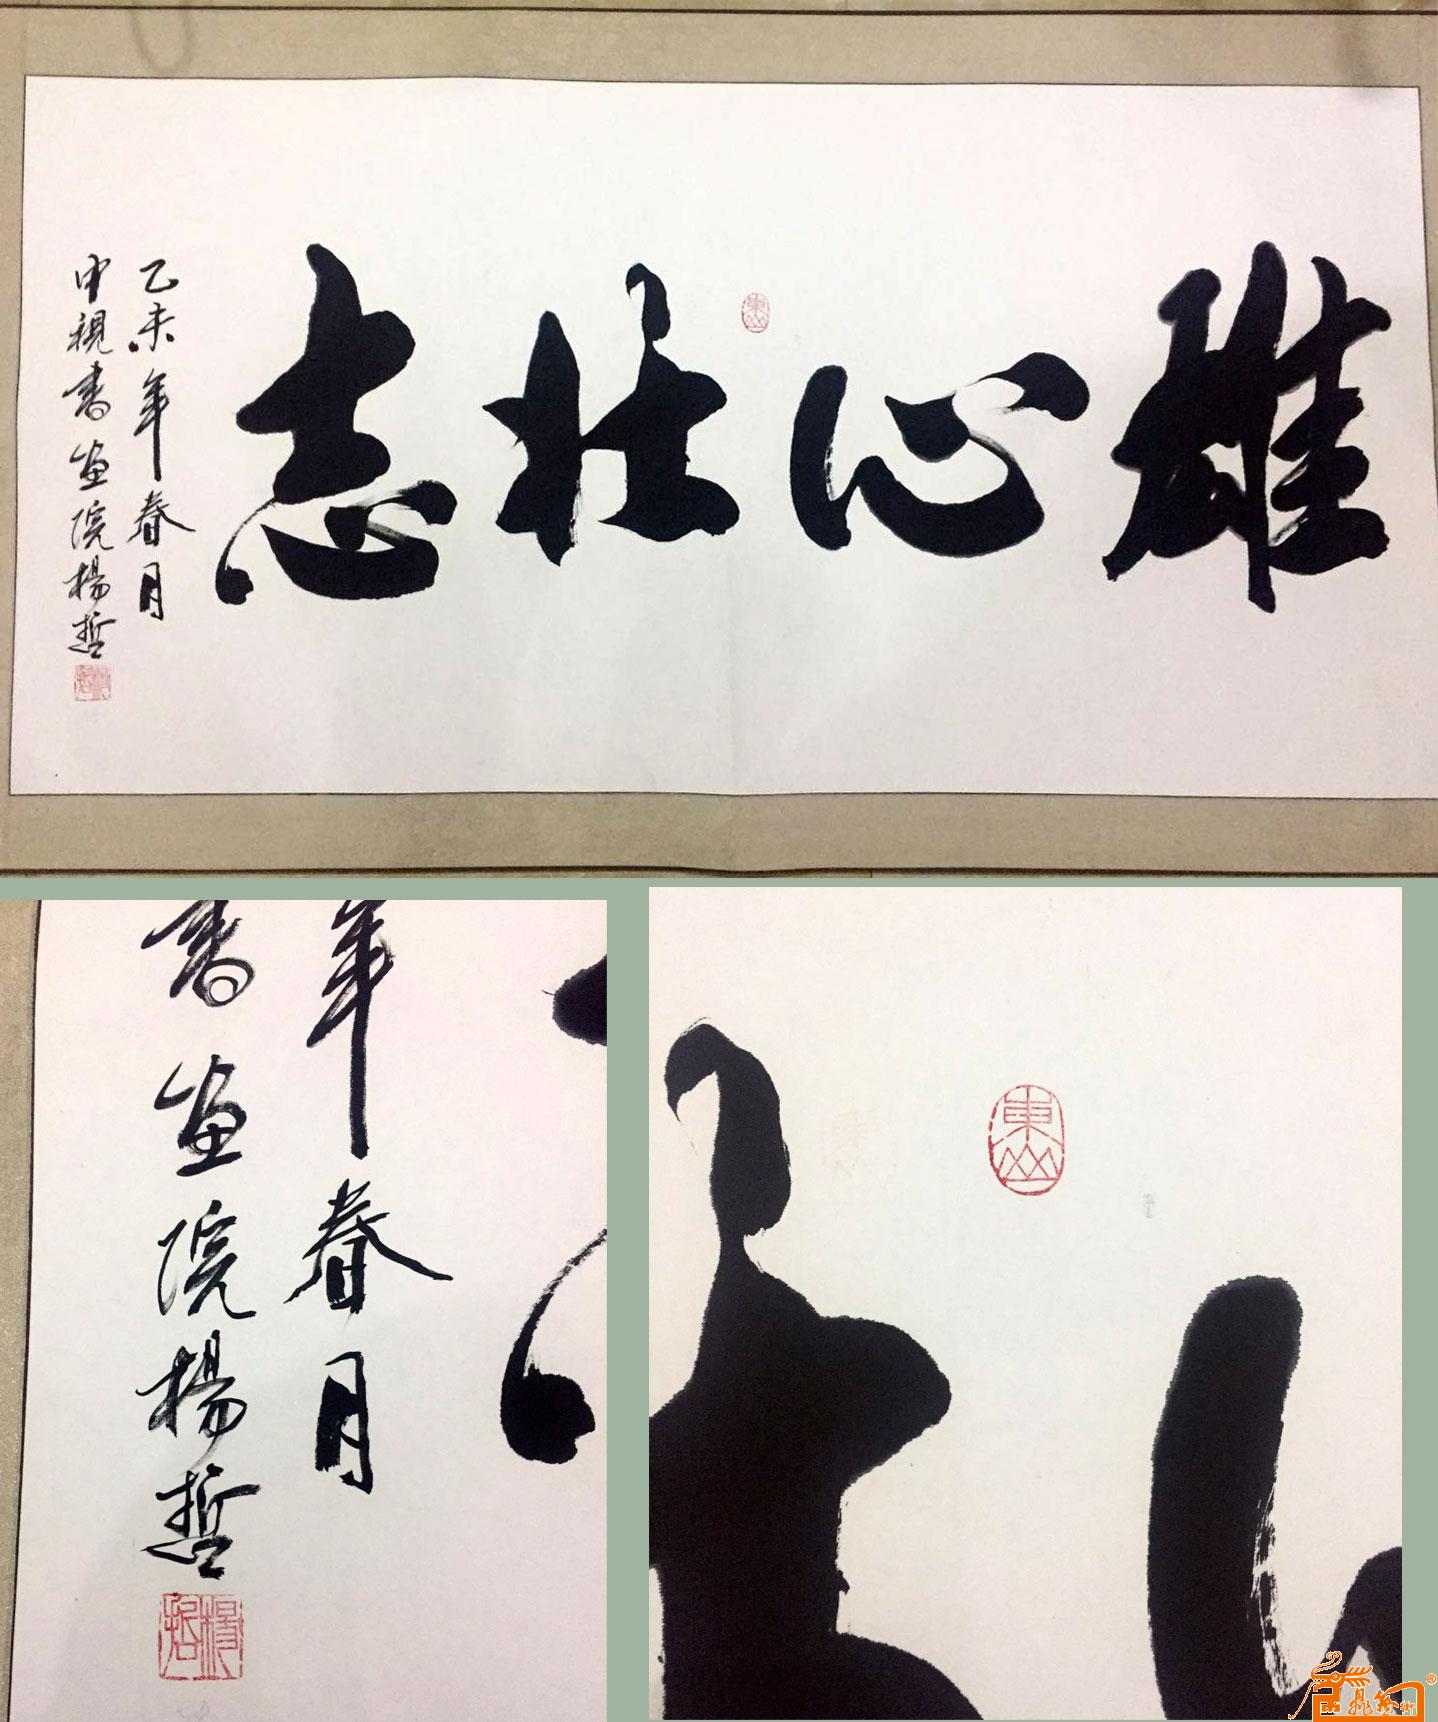 雄心壮志
乙未年春月
中視書画院楊哲
東山
楊哲
年春月
書画院楊哲
楊哲
東山